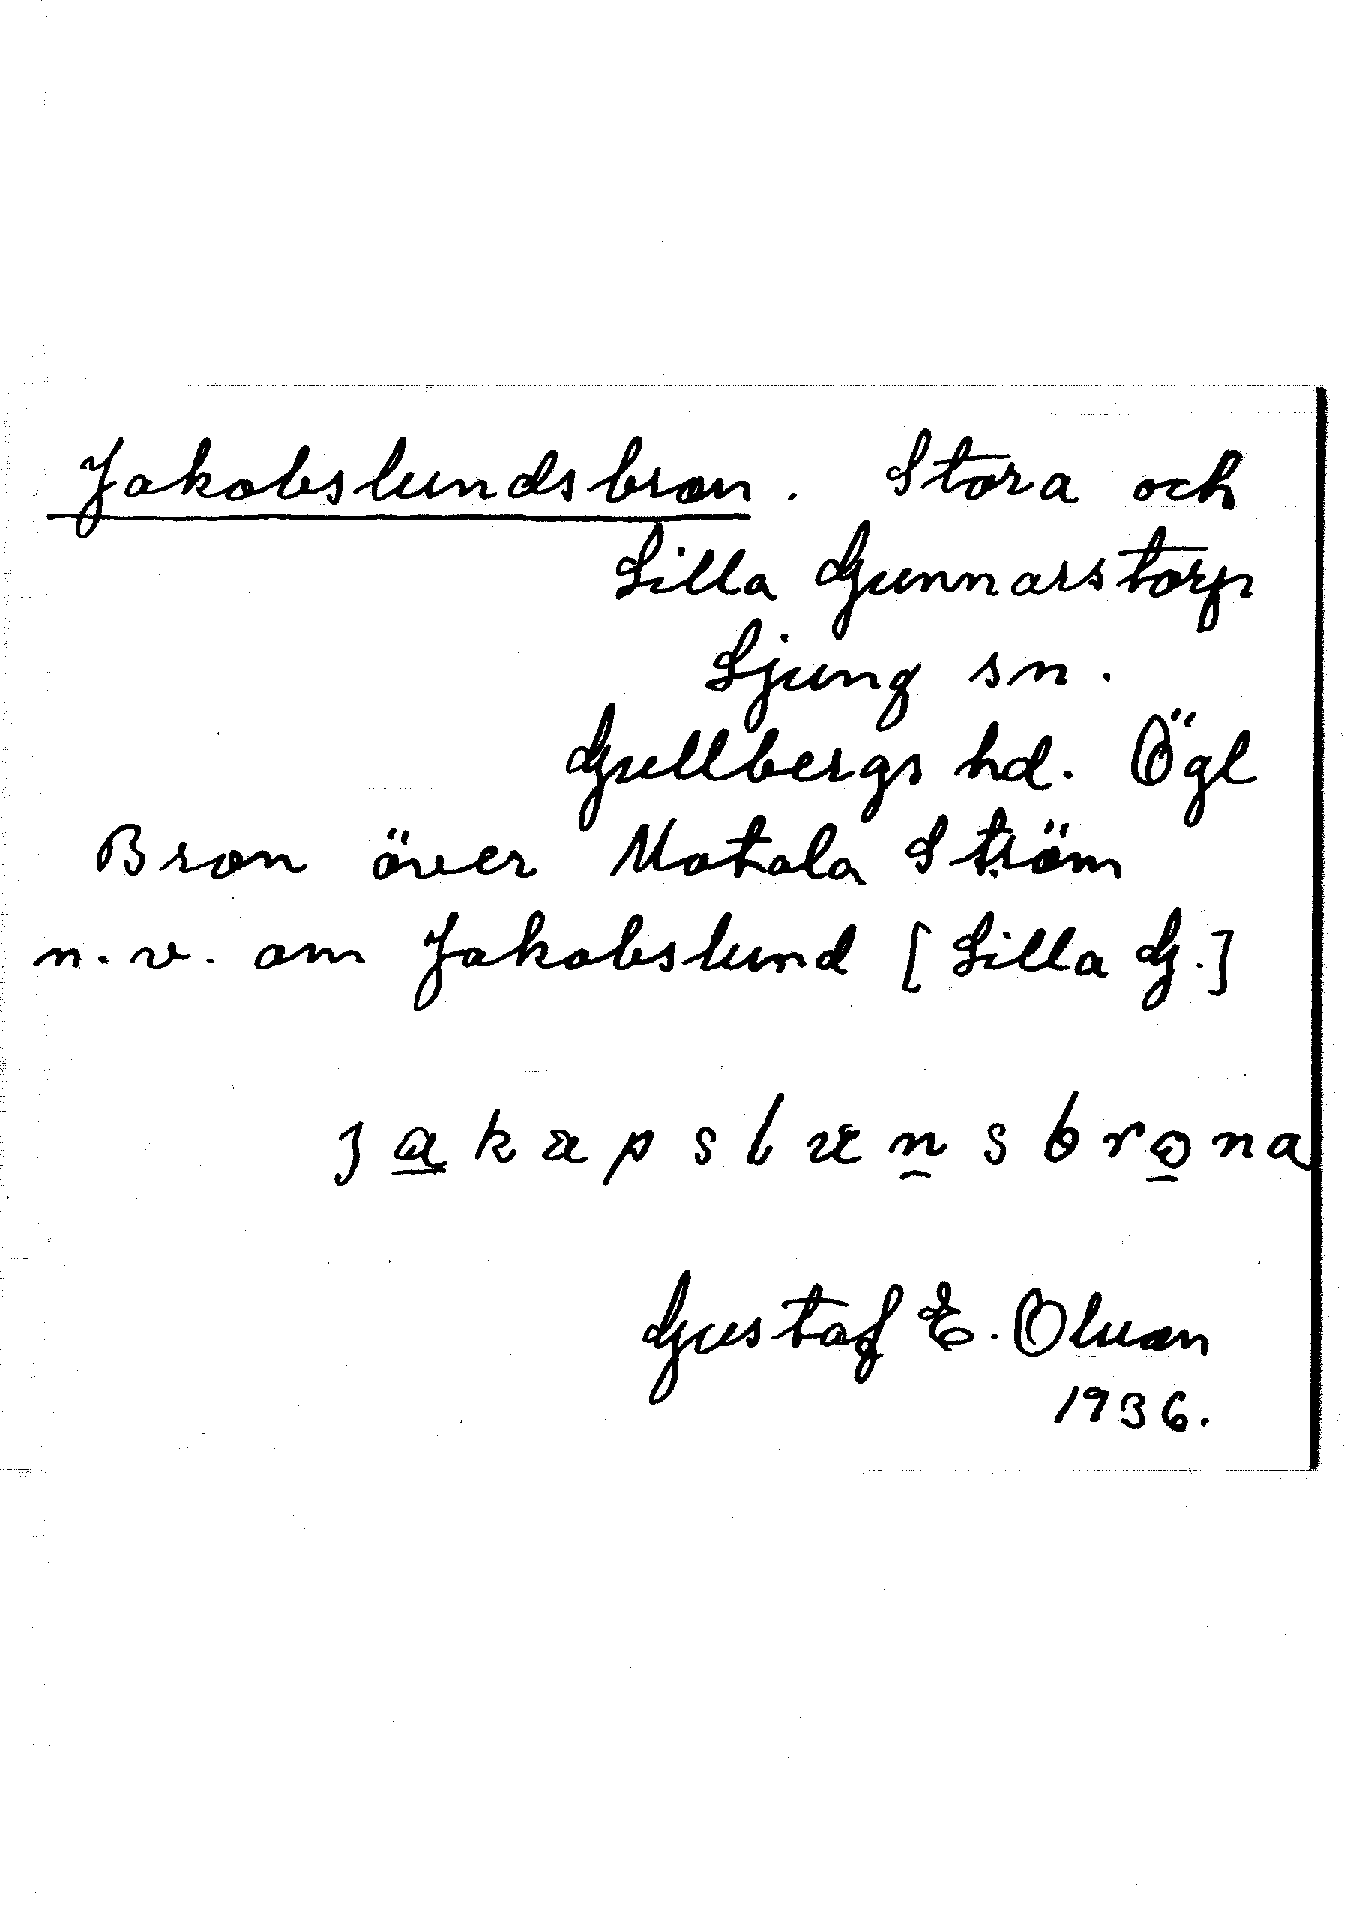 Jakobslundsbron. Stora och
Lilla Gunnarstorp
Ljung sn.
Gullbergs hd. Ögl
Bron över Motala Ström
n. v. om Jakobslund [Lilla G.]
Gustaf E. Oluan
1936.